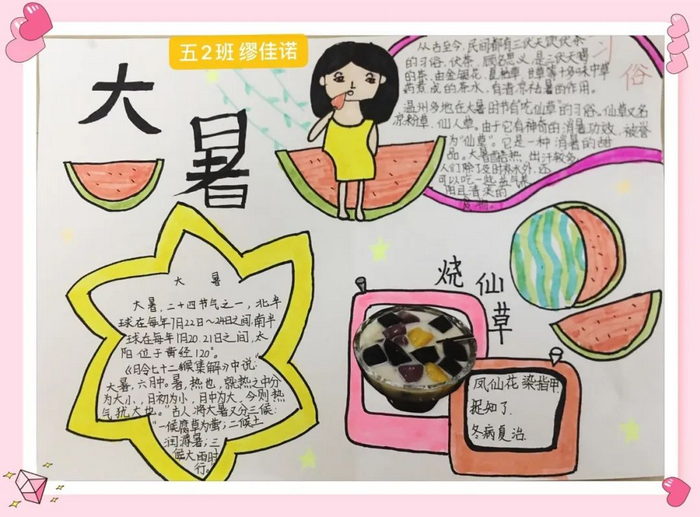 五2班 缪佳诺
大
暑
习
俗
从古至今,民间都有三伏天饮伏茶
的习俗,伏茶,顾名思义,是三伏天喝
的茶,由金银花、夏枯草、甘草等十多味中草
药煮成的茶水,有清凉祛暑的作用。
温州多地在大暑时节有吃仙草的习俗。仙草又名
凉粉草、仙人草。由于它有神奇的消暑功效,被誉
为“仙草”。它是一种消暑的甜
品。大暑酷热,出汗较多,
人们除了及时补水外,还
可以吃一些益气养
大 暑
大暑,二十四节气之一,北半
球在每年7月22日~24日之间,南半
球在每年1月20.21日之间,太
阳位于黄经120°。
《月令七十二候集解》中说:
大暑,六月中。暑,热也,就热之中分
为大小,月初为小,月中为大,今则热
气犹大也。”古人将大暑又分三候:
“一候腐草为萤;二候土
润溽暑;三
候大雨时
行。
烧仙草
凤仙花染指甲
捉知了.
冬病夏治.